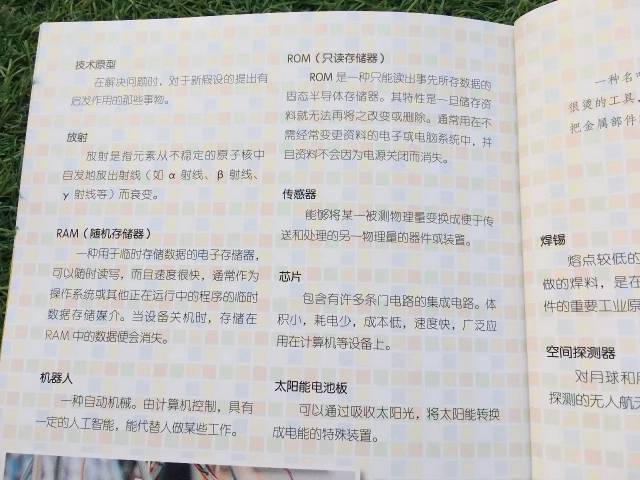 技术原型
在解决问题时，对于新假设的提出有
启发作用的那些事物。
放射
放射是指元素从不稳定的原子核中
自发地放出射线（如 α 射线、β 射线、
γ 射线等）而衰变。
RAM（随机存储器）
一种用于临时存储数据的电子存储器，
可以随时读写，而且速度很快，通常作为
操作系统或其他正在运行中的程序的临时
数据存储媒介。当设备关机时，存储在
RAM 中的数据便会消失。
机器人
一种自动机械。由计算机控制，具有
一定的人工智能，能代替人做某些工作。
ROM（只读存储器）
ROM 是一种只能读出事先所存数据的
固态半导体存储器。其特性是一旦储存资
料就无法再将之改变或删除。通常用在不
需经常变更资料的电子或电脑系统中，并
且资料不会因为电源关闭而消失。
传感器
能够将某一被测物理量变换成便于传
送和处理的另一物理量的器件或装置。
芯片
包含有许多条门电路的集成电路。体
积小，耗电少，成本低，速度快，广泛应
用在计算机等设备上。
太阳能电池板
可以通过吸收太阳光，将太阳能转换
成电能的特殊装置。
一种名
很烫的工具，
把金属部件
焊锡
熔点较低的
做的焊料，是在
件的重要工业原
空间探测器
对月球和
探测的无人航